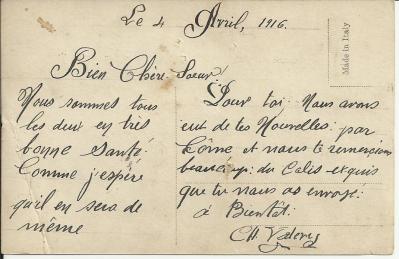 Le 4 Avril, 1916.
Made in Italy
Bien Chère Sœur
Nous sommes tous
les deux en très
bonne santé
Comme j'espère
qu'il en sera de
même
Pour toi. Nous avons
eut de tes Nouvelles par
Corne et nous te remercions
beaucoup du Colis exquis
que tu nous as envoyé.
à Bientôt.
CH